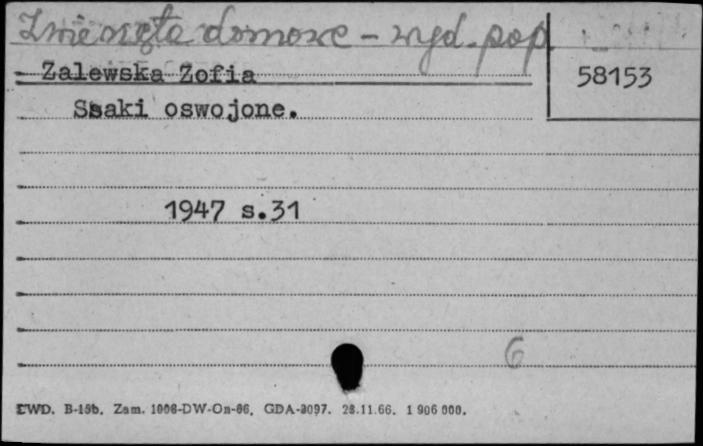 Zwierzęta domowe - wyd. pop.
58153
Zalewska Zofia
Ssaki oswojone.
1947 s.31
6
CWD. B-15b. Zam. 1008-DW-On-66. GDA-3097. 28.11.66. 1 906 000.